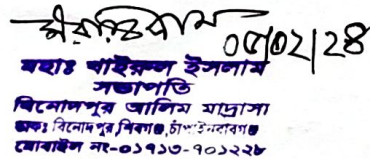 ০৫/০২/২৪
মহাঃ খাইরুল ইসলাম
সভাপতি
বিনোদপুর আলিম মাদ্রাসা
ডাকঃ বিনোদপুর, শিবগঞ্জ, চাঁপাইনবাবগঞ্জ
মোবাইল নং-০১৭১৩-৭০১২২৮